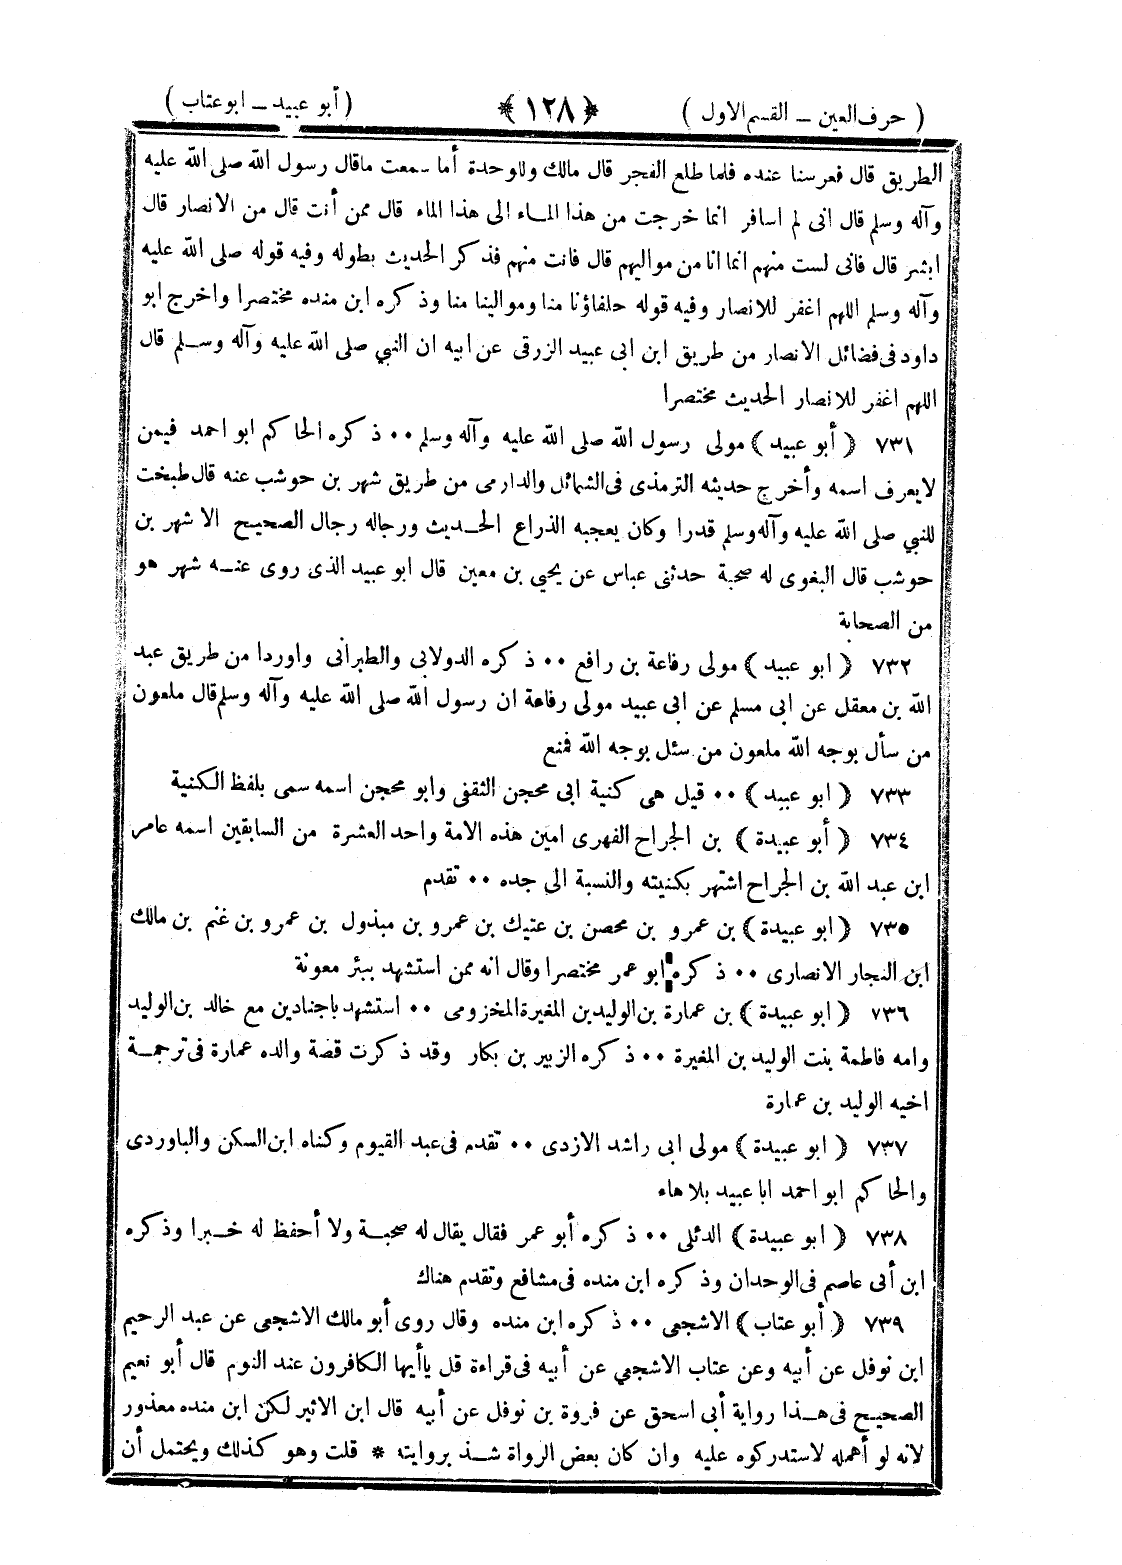 ( حرف العين – القسم الاول ) ﴿ ١٢٨ ﴾ ( أبو عبيد – ابوعتاب )
الطريق قال فعرسنا عنده فلما طلع الفجر قال مالك وللوحدة أما سمعت ماقال رسول الله صلى الله عليه
وآله وسلم قال انى لم اسافر انما خرجت من هذا المـاء الى هذا الماء قال ممن أنت قال من الانصار قال
ابشر قال فانى لست منهم انما انا من مواليهم قال فانت منهم فذكر الحديث بطوله وفيه قوله صلى الله عليه
وآله وسلم اللهم اغفر للانصار وفيه قوله حلفاؤنا منا وموالينا منا وذكره ابن منده مختصرا واخرج ابو
داود فى فضائل الانصار من طريق ابن ابى عبيد الزرقى عن ابيه ان النبي صلى الله عليه وآله وسـلم قال
اللهم اغفر للانصار الحديث مختصرا
٧٣١ ( أبو عبيد ) مولى رسول الله صلى الله عليه وآله وسلم ٠٠ ذكره الحاكم ابو احمد فيمن
لايعرف اسمه وأخرج حديثه الترمذى فى الشمائل والدارمى من طريق شهر بن حوشب عنه قال طبخت
للنبي صلى الله عليه وآله وسلم قدرا وكان يعجبه الذراع الحـديث ورجاله رجال الصحيح الا شهر بن
حوشب قال البغوى له صحبة حدثنى عباس عن يحيي بن معين قال ابو عبيد الذى روى عنـه شهر هو
من الصحابة
٧٣٢ ( ابو عبيد ) مولى رفاعة بن رافع ٠٠ ذكره الدولابى والطبرانى واوردا من طريق عبد
الله بن معقل عن ابى مسلم عن ابى عبيد مولى رفاعة ان رسول الله صلى الله عليه وآله وسلم قال ملعون
من سأل بوجه الله ملعون من سئل بوجه الله فمنع
٧٣٣ ( ابو عبيد ) ٠٠ قيل هى كنية ابى محجن الثقفى وابو محجن اسمه سمى بلفظ الكنية
٧٣٤ ( أبو عبيدة ) بن الجراح الفهرى امين هذه الامة واحد العشرة من السابقين اسمه عامر
ابن عبد الله بن الجراح اشتهر بكنيته والنسبة الى جده ٠٠ تقدم
٧٣٥ ( ابو عبيدة ) بن عمرو بن محصن بن عتيك بن عمرو بن مبذول بن عمرو بن غنم بن مالك
ابن النجار الانصارى ٠٠ ذكره ابو عمر مختصرا وقال انه ممن استشهد ببئر معونة
٧٣٦ ( ابو عبيدة ) بن عمارة بن الوليد بن المغيرة المخزومى ٠٠ استشهد باجنادين مع خالد بن الوليد
وامه فاطمة بنت الوليد بن المغيرة ٠٠ ذكره الزبير بن بكار وقد ذكرت قصة والده عمارة فى ترجمـة
اخيه الوليد بن عمارة
٧٣٧ ( ابو عبيدة ) مولى ابى راشد الازدى ٠٠ تقدم فى عبد القيوم وكناه ابن السكن والباوردى
والحاكم ابو احمد ابا عبيد بلا هاء
٧٣٨ ( ابو عبيدة ) الدئلى ٠٠ ذكره أبو عمر فقال يقال له صحبـة ولا أحفظ له خـبرا وذكره
ابن أبى عاصم فى الوحدان وذكره ابن منده فى مشافع وتقدم هناك
٧٣٩ ( أبو عتاب ) الاشجعى ٠٠ ذكره ابن منده وقال روى أبو مالك الاشجعى عن عبد الرحيم
ابن نوفل عن أبيه وعن عتاب الاشجعي عن أبيه فى قراءة قل ياأيها الكافرون عند النوم قال أبو نعيم
الصحيح فى هـذا رواية أبى اسحق عن فروة بن نوفل عن أبيه قال ابن الاثير لكن ابن منده معذور
لانه لو أهمله لاستدركوه عليه وان كان بعض الرواة شـذ بروايته * قلت وهو كذلك ويحتمل أن